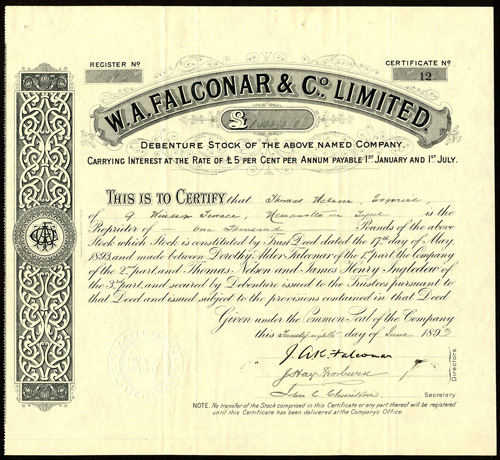 REGISTER Nº
CERTIFICATE Nº
12
W.A. FALCONAR & Cº. LIMITED.
£
DEBENTURE STOCK OF THE ABOVE NAMED COMPANY.
CARRYING INTEREST AT THE RATE OF £5 PER CENT PER ANNUM PAYABLE 1ST JANUARY AND 1ST JULY.
THIS IS TO CERTIFY that Thomas Nelson, Esquire,
of 9 Windsor Terrace, Newcastle on Tyne is the
Proprietor of one Thousand Pounds of the above
Stock which Stock is constituted by Trust Deed dated the 17th day of May
1893 and made between Dorothy Alder Falconar of the 1st part, the Company
of the 2nd part, and Thomas Nelson and James Henry Ingledew of the
3rd part, and secured by Debenture issued to the Trustees pursuant to
that Deed and issued subject to the provisions contained in that Deed.
Given under the Common Seal of the Company
this Twenty eighth day of June 1893
Falconar
J. Hay
Directors
John C.
Secretary.
NOTE. No transfer of the Stock comprised in this Certificate or any part thereof will be registered
until this Certificate has been delivered at the Company's Office.